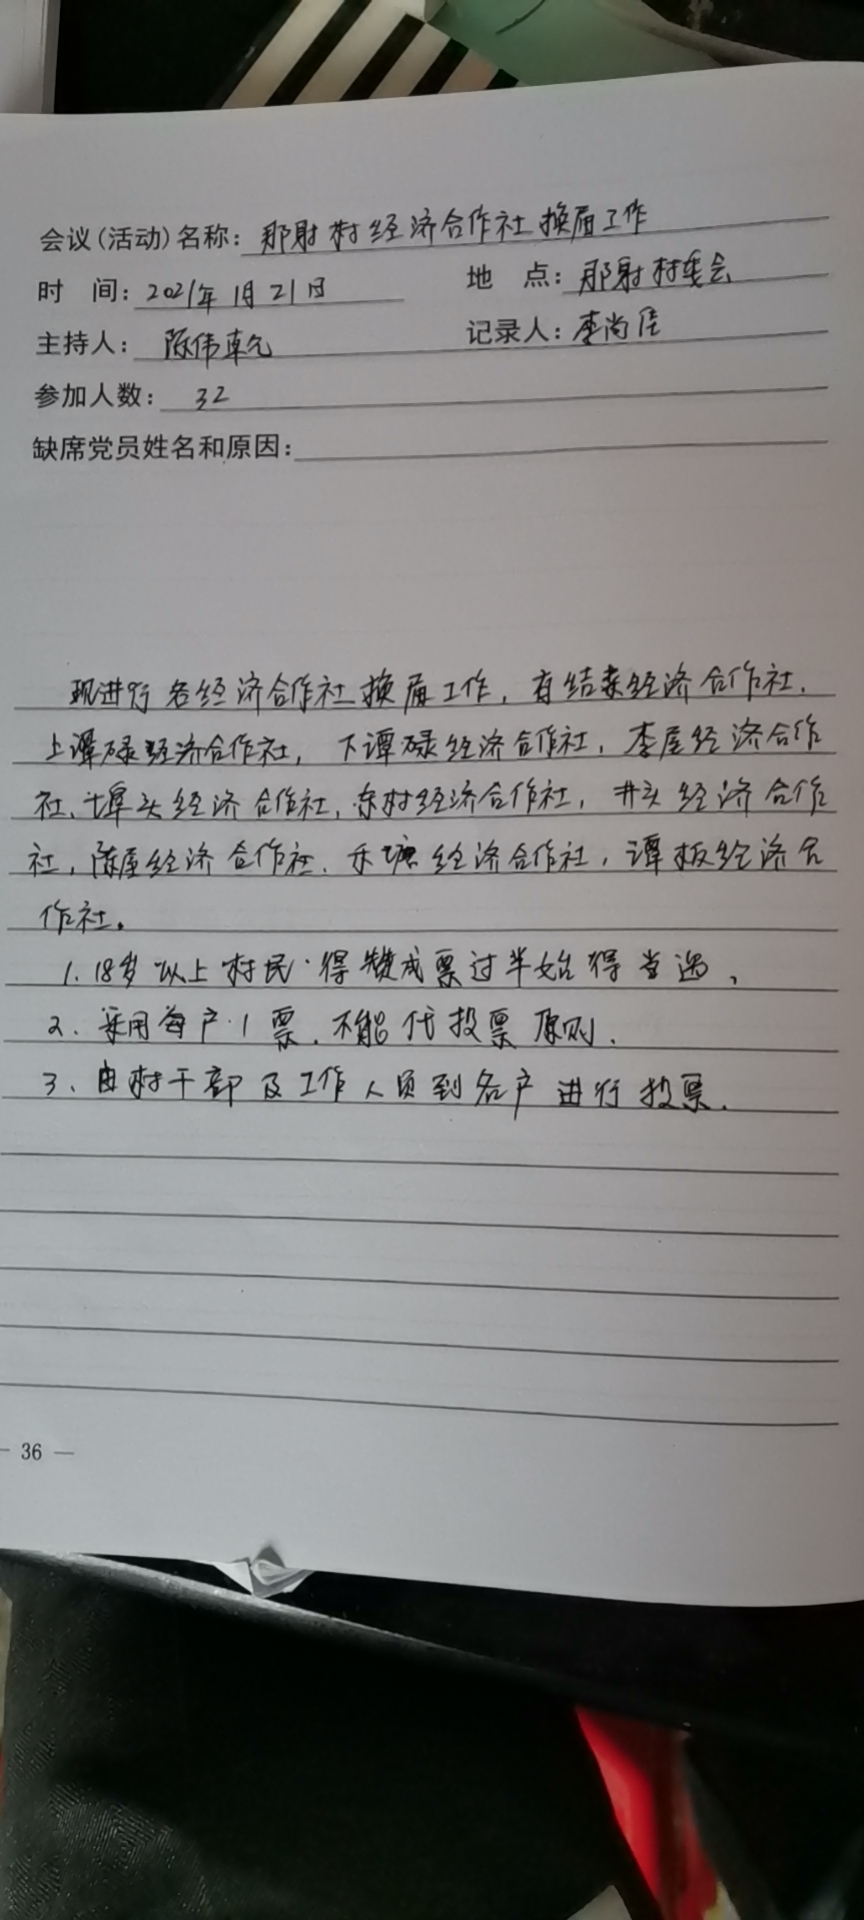 会议(活动)名称: 那射村经济合作社换届工作
时 间: 2021年1月21日 地 点: 那射村委会
主持人: 陈伟 记录人: 李尚佳
参加人数: 32
缺席党员姓名和原因:
现进行各经济合作社换届工作, 有结束经济合作社,
上谭碌经济合作社, 下谭碌经济合作社, 李屋经济合作
社, 埠头经济合作社, 东村经济合作社, 井头经济合作
社, 陈屋经济合作社, 禾塘经济合作社, 谭板经济合
作社。
1. 18岁以上村民·得赞成票过半始得当选,
2、采用每户1票, 不能代投票原则.
3、由村干部及工作人员到各户进行投票.
— 36 —